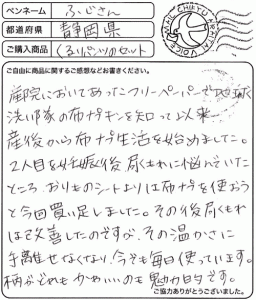 ペンネーム ふじさん
都道府県 静岡県
ご購入商品 くるりパンツのセット
MAIL CHIEKU ARATAI VOICE
ご自由に商品に関するご感想などお書きください。
産院においてあったフリーペーパーで地球
洗い隊の布ナプキンを知って以来
産後から布ナプ生活を始めました。
2人目を妊娠後、尿もれに悩んでいた
ところ、おりものシートよりは布ナプを使おう
と今回買い足しました。その後尿もれ
は改善したのですが、その温かさに
手離せなくなり、今でも毎日使っています。
柄がどれもかわいいのも魅力的です。
ご協力ありがとうございました。